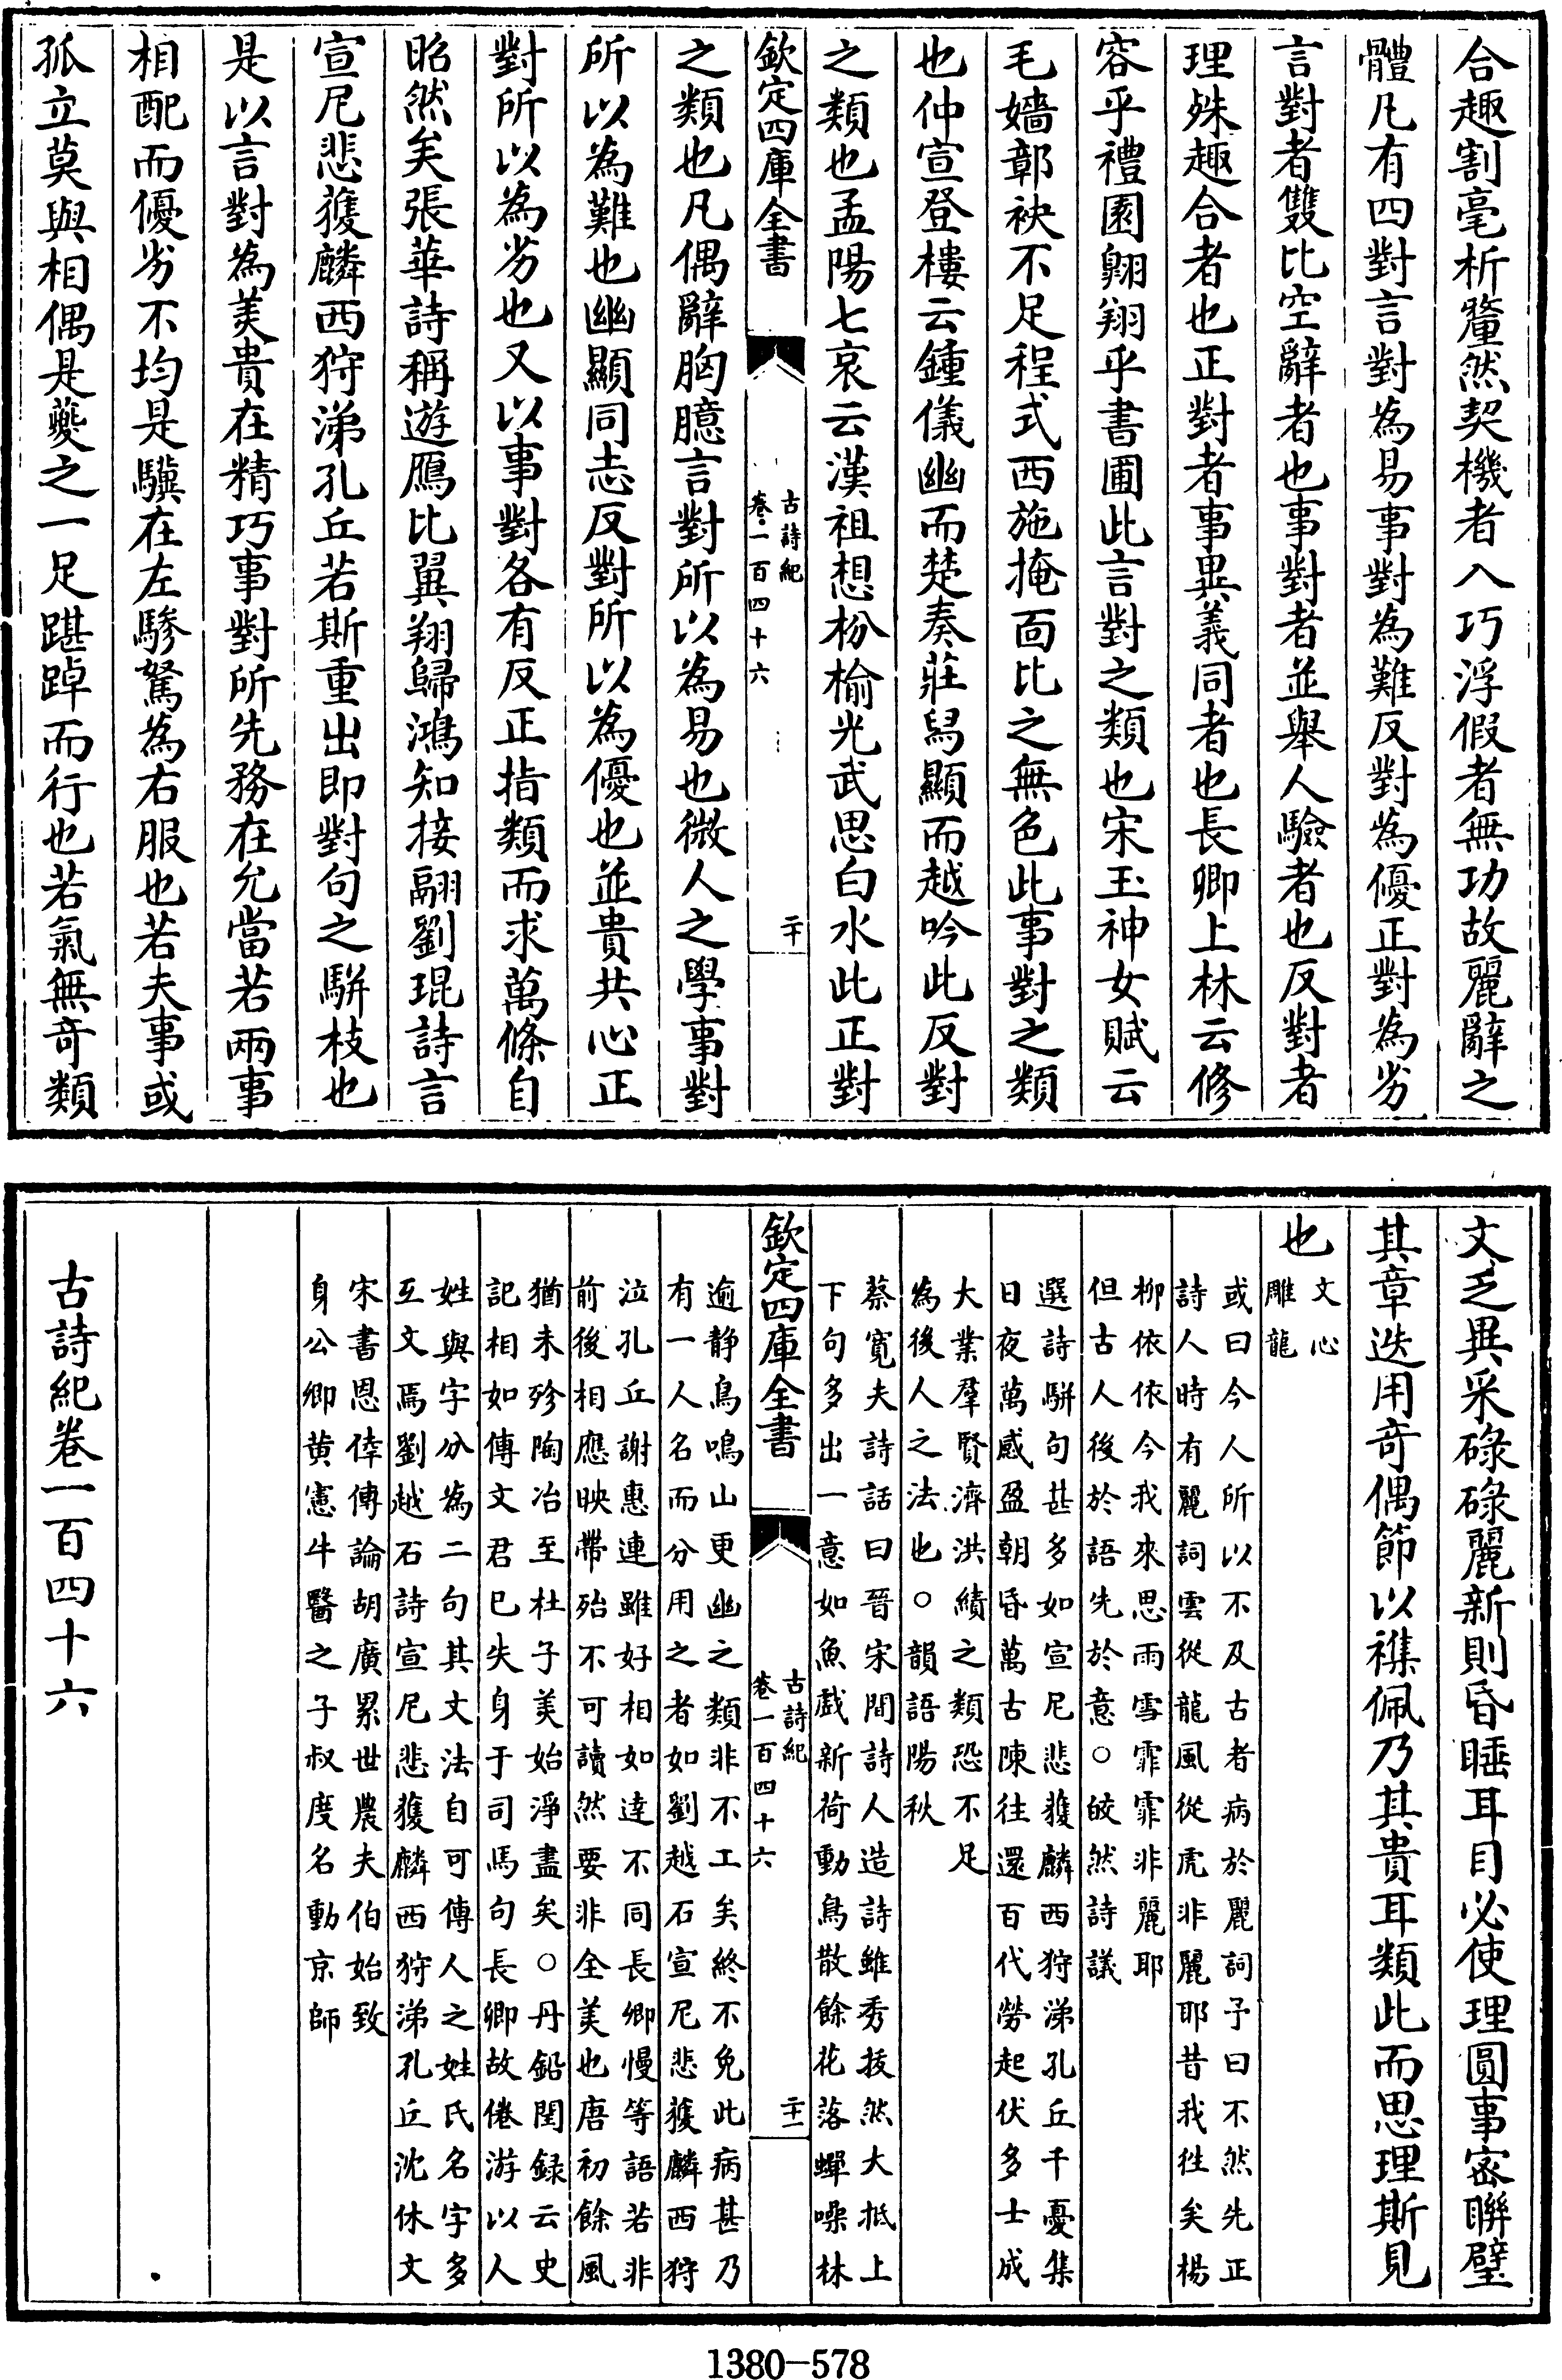 合趣割毫析釐然契機者入巧浮假者無功故麗辭之
體凡有四對言對為易事對為難反對為優正對為劣
言對者雙比空辭者也事對者並舉人驗者也反對者
理殊趣合者也正對者事異義同者也長卿上林云修
容乎禮園翱翔乎書圃此言對之類也宋玉神女賦云
毛嬙鄣袂不足程式西施掩面比之無色此事對之類
也仲宣登樓云鍾儀幽而楚奏莊舄顯而越吟此反對
之類也孟陽七哀云漢祖想枌榆光武思白水此正對
欽定四庫全書
古詩紀
卷一百四十六
二十
之類也凡偶辭胸臆言對所以為易也微人之學事對
所以為難也幽顯同志反對所以為優也並貴共心正
對所以為劣也又以事對各有反正指類而求萬條自
昭然矣張華詩稱遊鴈比翼翔歸鴻知接翮劉琨詩言
宣尼悲獲麟西狩涕孔丘若斯重出即對句之駢枝也
是以言對為美貴在精巧事對所先務在允當若兩事
相配而優劣不均是驥在左驂駑為右服也若夫事或
孤立莫與相偶是夔之一足踸踔而行也若氣無奇類
文乏異采碌碌麗新則昏睡耳目必使理圓事密聯璧
其章迭用奇偶節以襍佩乃其貴耳類此而思理斯見
也
文心
雕龍
或曰今人所以不及古者病於麗詞予曰不然先正
詩人時有麗詞雲從龍風從虎非麗耶昔我徃矣楊
柳依依今我來思雨雪霏霏非麗耶
但古人後於語先於意○皎然詩議
選詩駢句甚多如宣尼悲獲麟西狩涕孔丘千憂集
日夜萬感盈朝昏萬古陳往還百代勞起伏多士成
大業羣賢濟洪績之類恐不足
為後人之法也○韻語陽秋
蔡寬夫詩話曰晉宋間詩人造詩雖秀拔然大抵上
下句多出一意如魚戲新荷動鳥散餘花落蟬噪林
欽定四庫全書
古詩紀
卷一百四十六
二十一
逾静鳥鳴山更幽之類非不工矣終不免此病甚乃
有一人名而分用之者如劉越石宣尼悲獲麟西狩
泣孔丘謝惠連雖好相如達不同長卿慢等語若非
前後相應映帶殆不可讀然要非全美也唐初餘風
猶未殄陶冶至杜子美始淨盡矣○丹鉛閏録云史
記相如傳文君已失身于司馬句長卿故倦游以人
姓與字分為二句其文法自可傳人之姓氏名字多
互文焉劉越石詩宣尼悲獲麟西狩涕孔丘沈休文
宋書恩倖傳論胡廣累世農夫伯始致
身公卿黄憲牛醫之子叔度名動京師
古詩紀卷一百四十六
1380-578